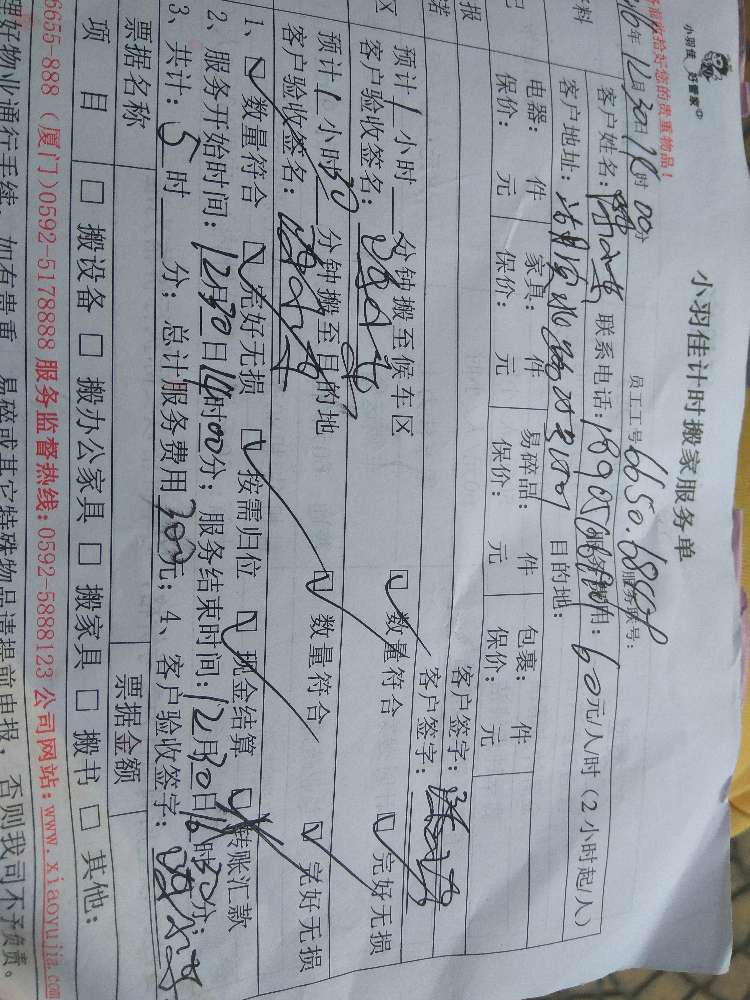 小羽佳 好管家
小羽佳计时搬家服务单
好能收拾好您的贵重物品！
员工工号
服务账号：
年12月30日14时00分
客户姓名：
联系电话：
60元/人/时（2小时起/人）
客户地址：
目的地：
电器： 件 家具： 件 易碎品： 件 包裹： 件
保价： 元 保价： 元 保价： 元 保价： 元
客户签字：
客户签字：
预计1小时 分钟搬至候车区 数量符合 完好无损
客户验收签名：
预计1小时30分钟搬至目的地 数量符合 完好无损
客户验收签名：
1、 数量符合 完好无损 按需归位 现金结算 转账汇款
2、服务开始时间：12月30日14时00分；服务结束时间：12月30日16时30分；
3、共计：5时 分；总计服务费用300元；4、客户验收签字：
票据名称 票据金额
项 目 □ 搬设备 □ 搬办公家具 □ 搬家具 □ 搬书 □ 其他：
6655-888（厦门)0592-5178888 服务监督热线：0592-5888123 公司网站：www.xiaoyujia.com
理好物业通行手续，如有贵重、易碎或其它特殊物品请提前申报，否则我司不予负责。